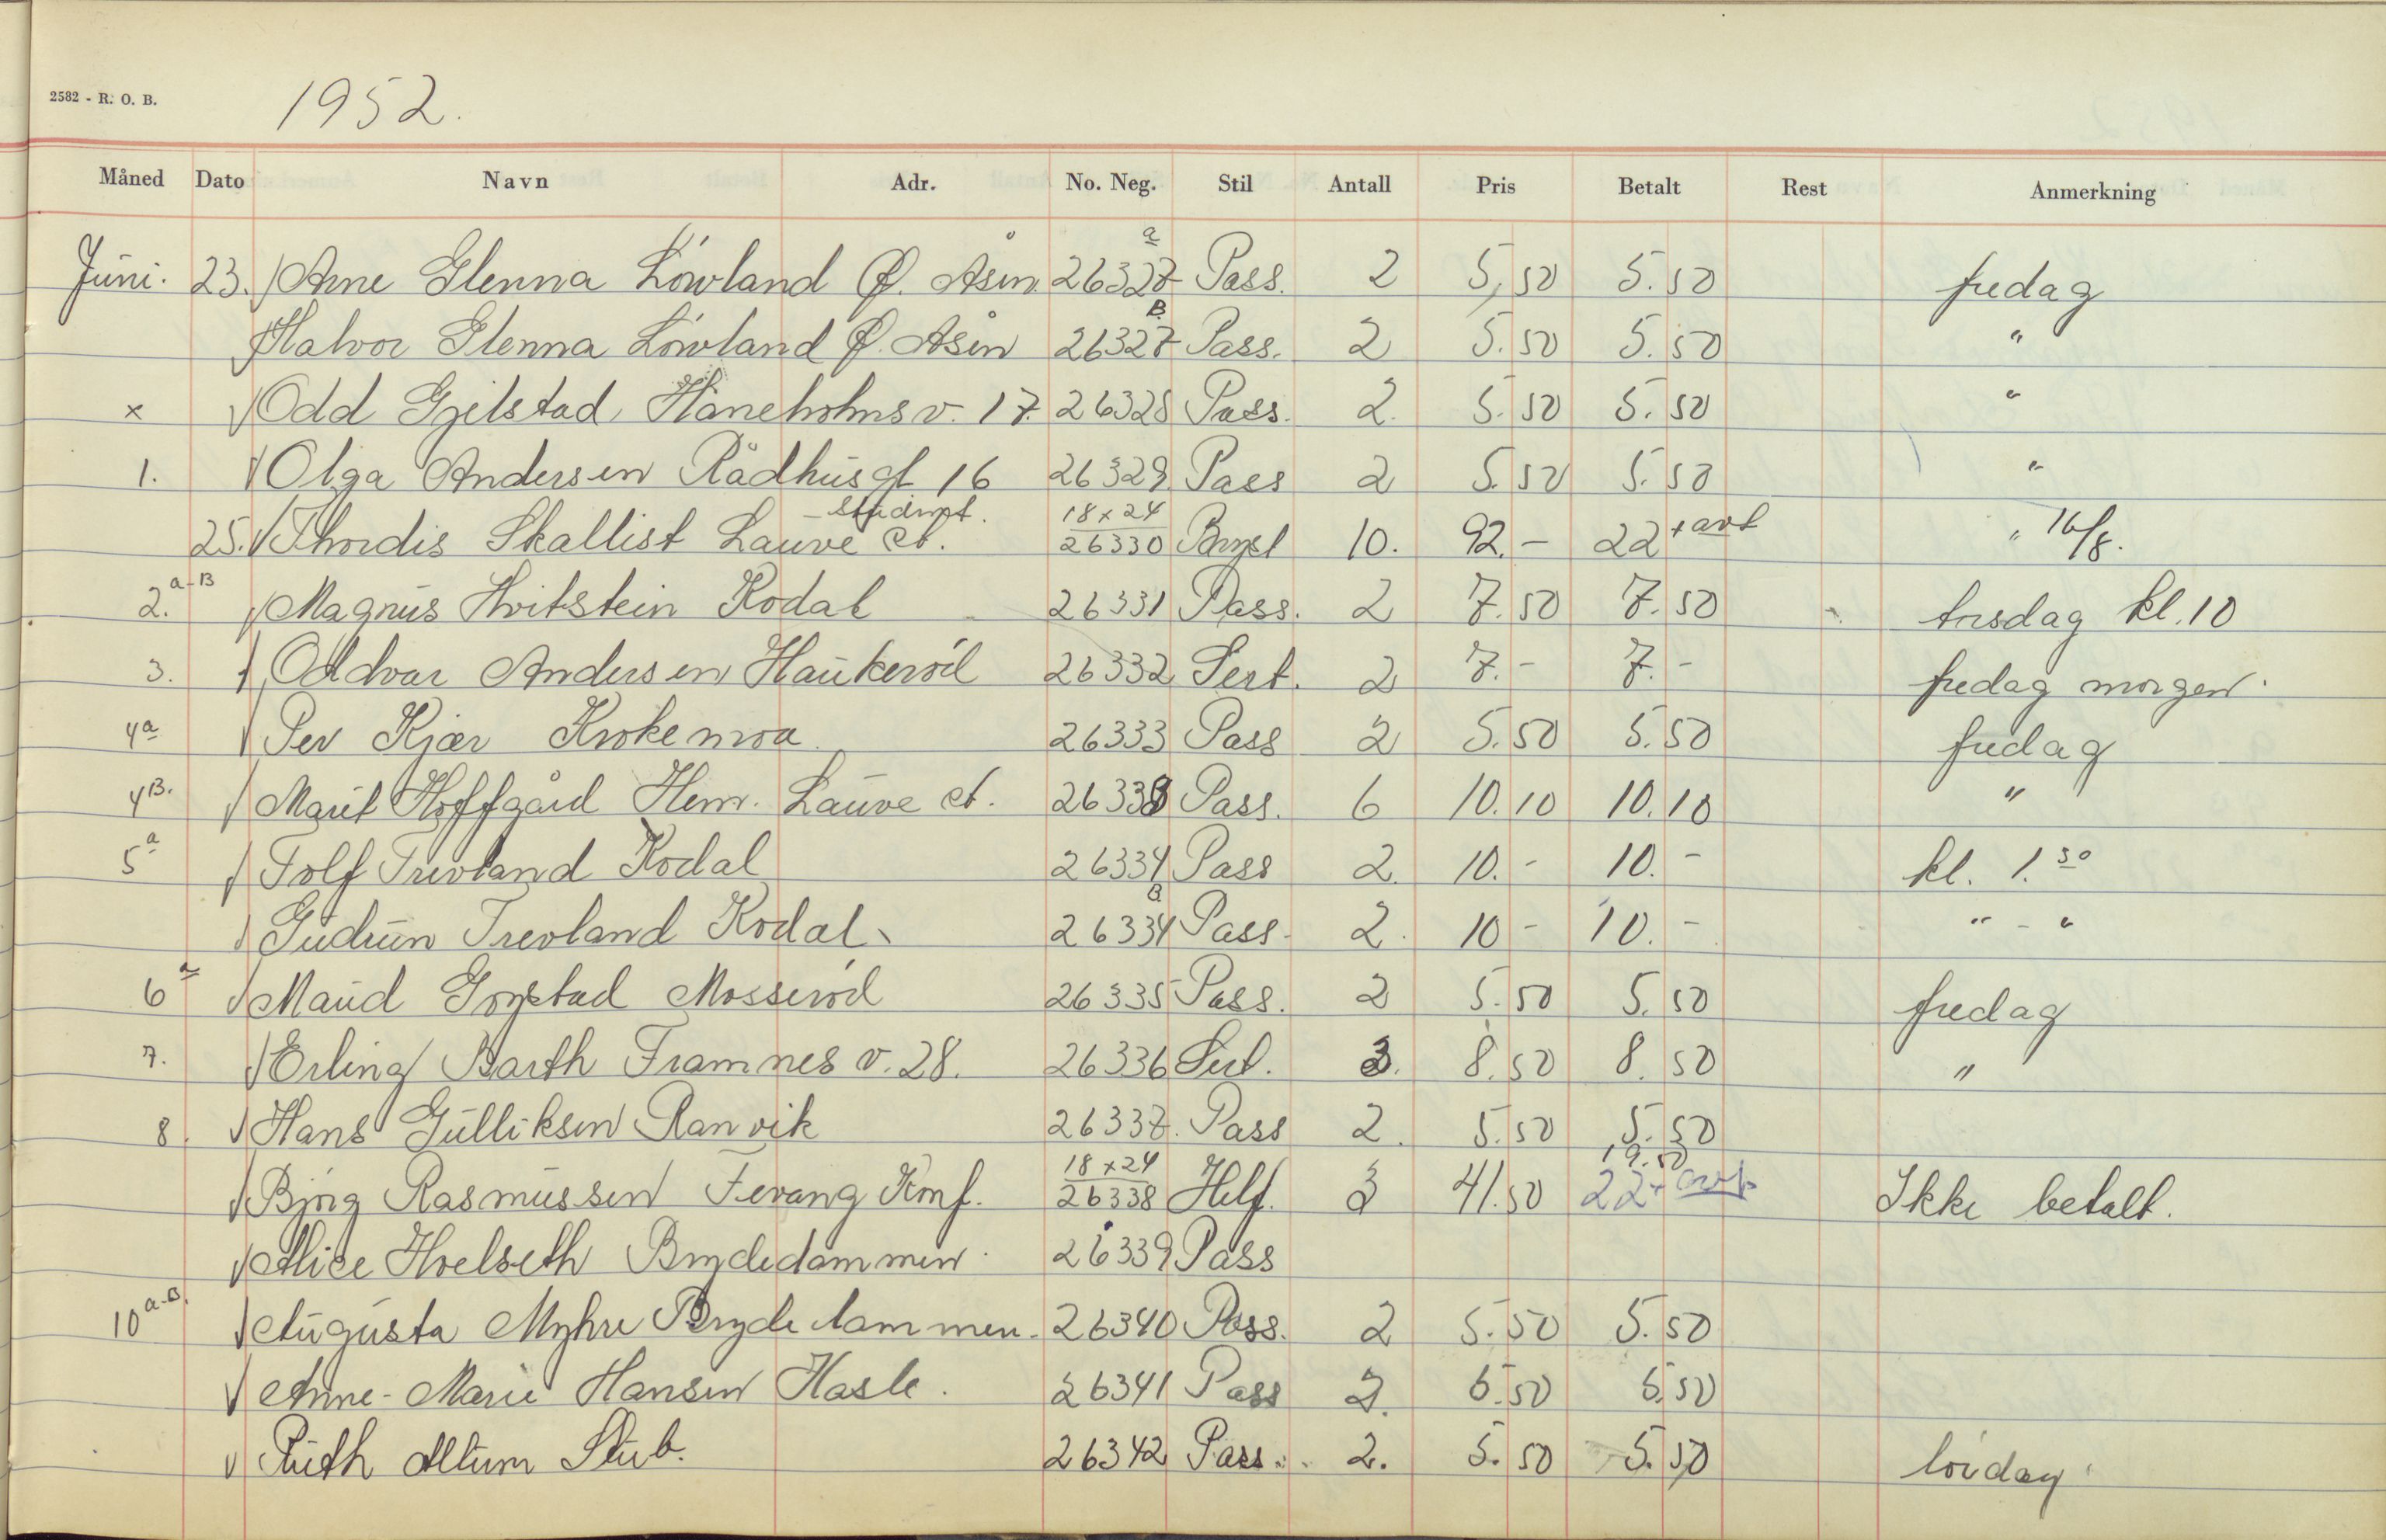 2582 - R. O. B.
1952.
Måned Dato Navn Adr. No. Neg. Stil Antall Pris Betalt Rest Anmerkning
Juni. 23. Arne Glenna Löwland Ø. Åsen 26327 a Pass. 2 5,50 5.50 fredag
Halvor Glenna Löwland Ø. Åsen 26327 B. Pass. 2 5.50 5.50 "
x Odd Gjelstad, Haneholmsv. 17. 26328 Pass. 2. 5.50 5.50 "
1. Olga Andersen Rådhusgt 16 26329 Pass 2 5.50 5.50 "
25. Thordis Skallist Lauve et. student. 18x24 26330 Bryst 10. 92.- 22 + avt " 16/8.
2. a-B Magnus Hvitstein Kodal 26331 Pass. 2 7.50 7.50 tirsdag kl. 10
3. Oddvar Andersen Haukeröd 26332 Sert. 2 7.- 7.- fredag morgen.
4a Per Kjær Krokemoa 26333 Pass 2 5.50 5.50 fredag
4B. Marit Hoffgård Hem. Lauve et. 26333 Pass. 6 10.10 10.10 "
5a Tolf Trevland Kodal 26334 Pass 2. 10.- 10.- kl. 1.30
Gudrun Trevland Kodal 26334 B Pass. 2. 10 - 10.- " - "
6a Maud Gogstad Mosseröd 26335 Pass. 2 5.50 5.50 fredag
7. Erling Barth Framnes v. 28. 26336 Sert. 3. 8.50 8.50 "
8. Hans Gulliksen Ranvik 26337. Pass 2. 5.50 5.50
Bjørg Rasmussen Fevang Konf. 18x24 26338 Helf. 3 41.50 19.50 22 + avt Ikke betalt.
Alice Hoelseth Brydedammen. 26339 Pass
10 a-B. Augusta Myhre Brydedammen. 26340 Pass. 2 5.50 5.50
Anne-Marie Hansen Hasle. 26341 Pass 2. 5.50 5.50
Ruth Altum Stub. 26342 Pass. 2. 5.50 5.50 lördag